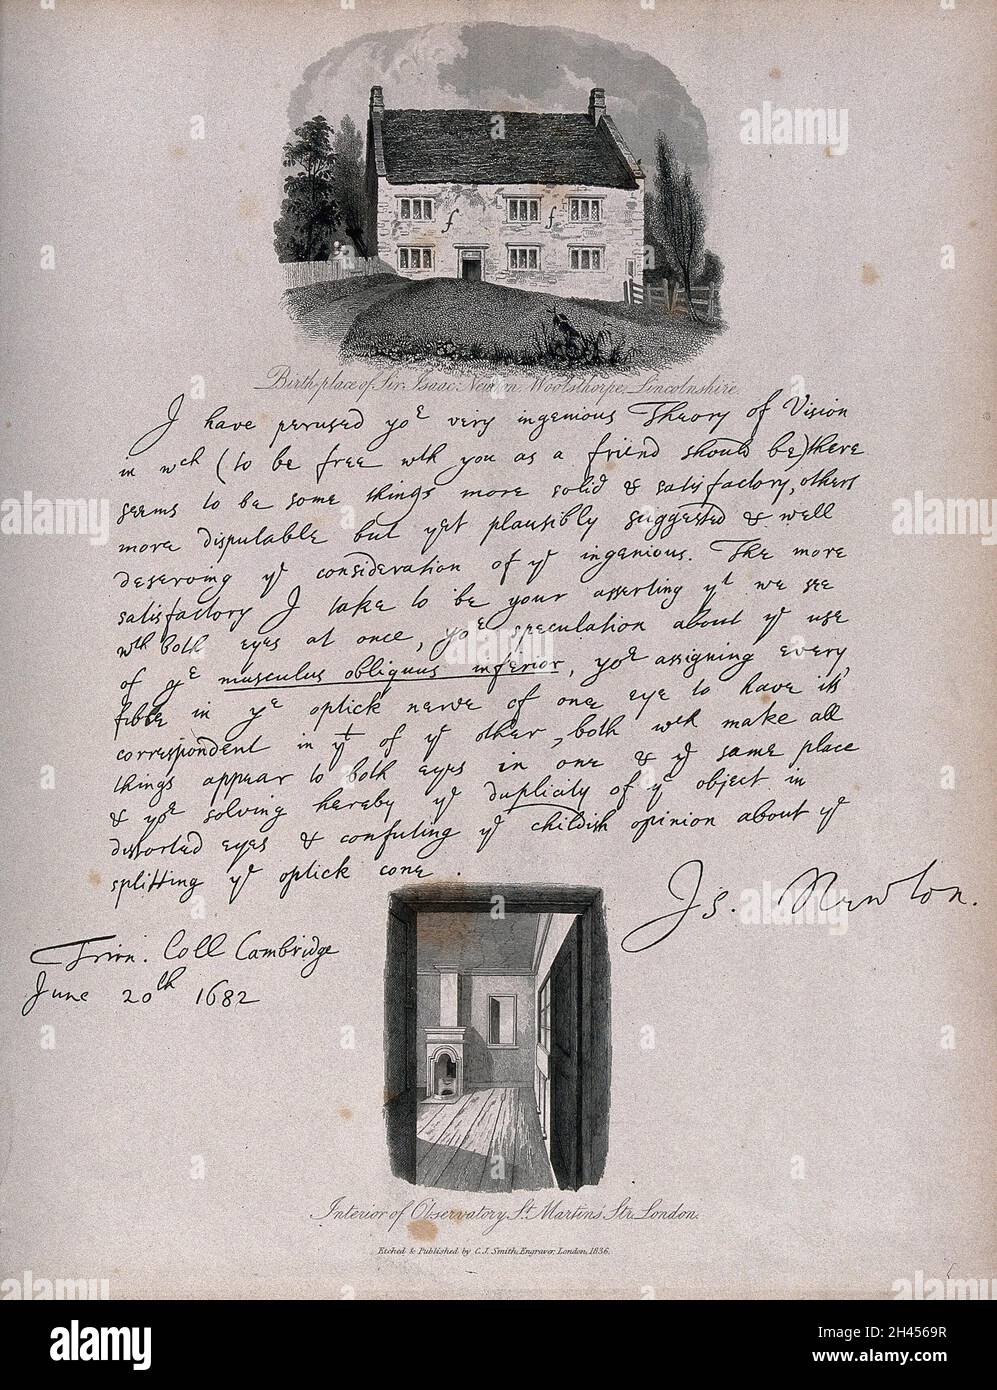 Birth-place of Sir Isaac Newton, Woolsthorpe, Lincolnshire.
I have perused yor very ingenious Theory of Vision
in wch (to be free wth you as a friend should be) there
seems to be some things more solid & satisfactory, others
more disputable but yet plausibly suggested & well
deserving ye consideration of ye ingenious. The more
satisfactory I take to be your asserting yt we see
wth both eyes at once, yor speculation about ye use
of ye musculus obliquus inferior, yor assigning every
fibre in ye optick nerve of one eye to have its
correspondent in yt of ye other, both wch make all
things appear to both eyes in one & ye same place
& yor solving hereby ye duplicity of ye object in
distorted eyes & confuting ye childish opinion about ye
splitting ye optick cone.
Is. Newton.
Trin. Coll Cambridge
June 20th 1682
Interior of Observatory St. Martin's Str. London.
Etched & Published by C. J. Smith, Engraver, London, 1836.
alamy
Image ID: 2H4569R
www.alamy.com